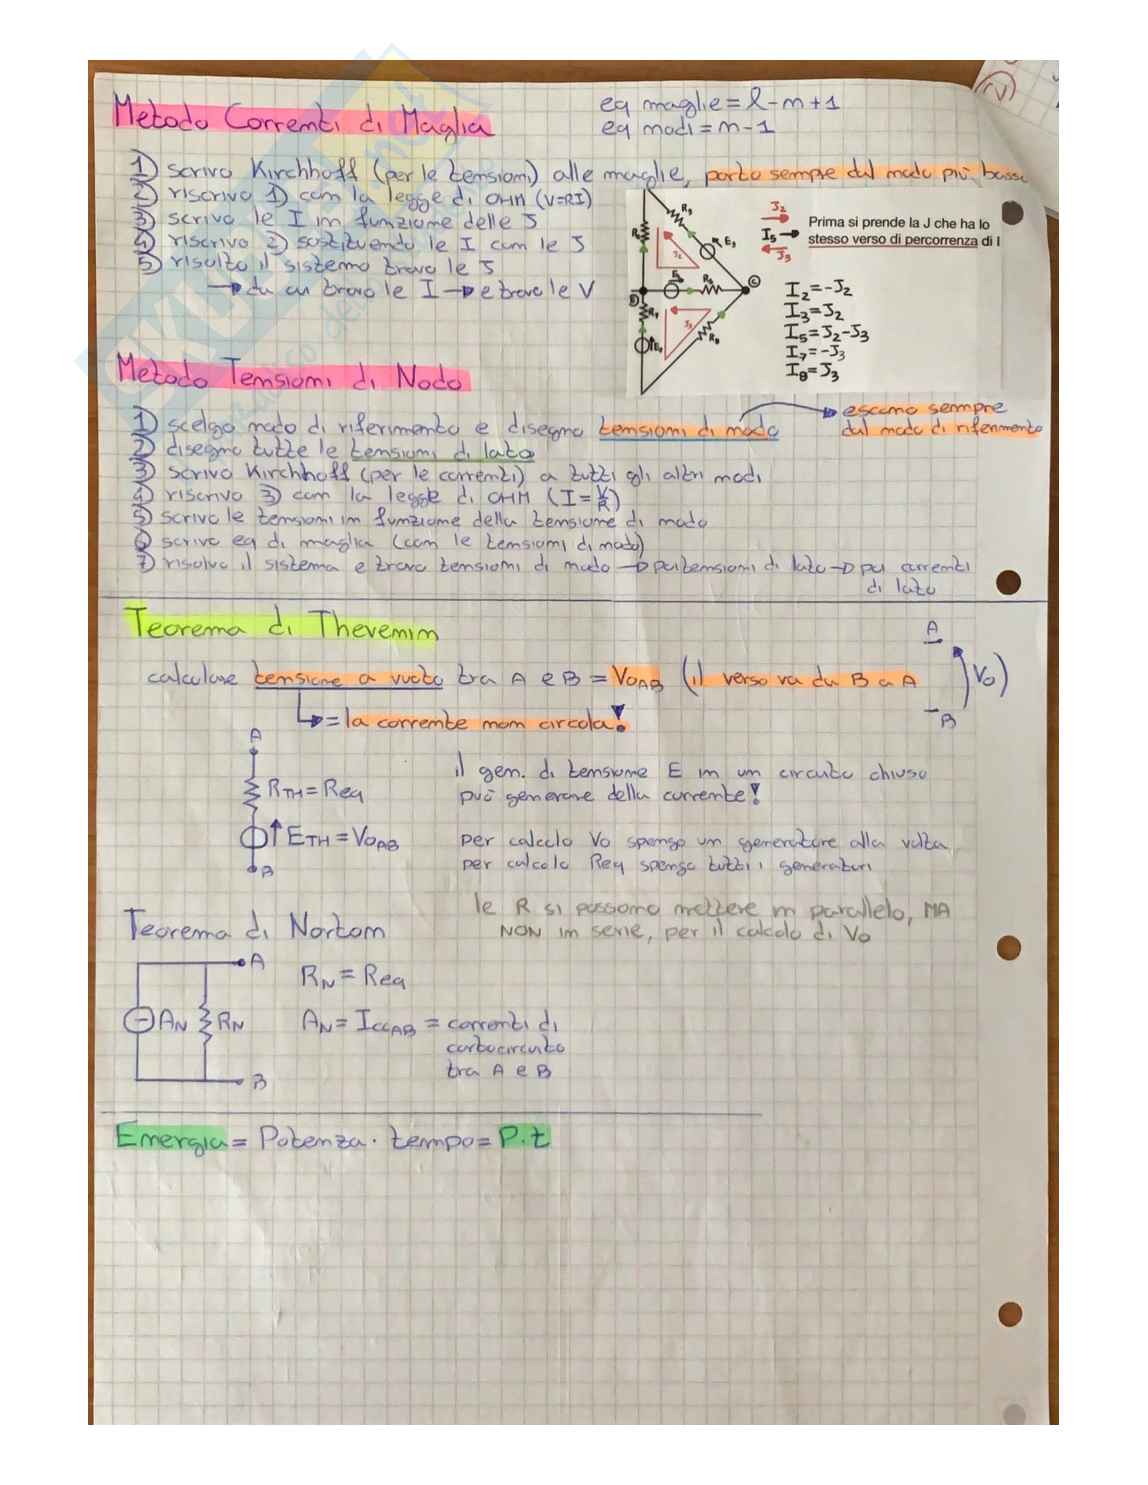 Metodo Correnti di Maglia
eq maglie = l - n + 1
eq nodi = n - 1
1) scrivo Kirchhoff (per le tensioni) alle maglie, parto sempre dal nodo più basso
2) riscrivo 1) con la legge di OHM (V=RI)
3) scrivo le I in funzione delle J
4) riscrivo 2) sostituendo le I con le J
5) risolto il sistema trovo le J
→ da cui trovo le I → e trovo le V
J2
I5 →
J3
Prima si prende la J che ha lo
stesso verso di percorrenza di I
I2 = -J2
I3 = J2
I5 = J2 - J3
I7 = -J3
I8 = J3
R3
E3
J2
R5
C
D
R7
J3
R8
E7
Metodo Tensioni di Nodo
1) scelgo nodo di riferimento e disegno tensioni di nodo → escono sempre
dal nodo di riferimento
2) disegno tutte le tensioni di lato
3) scrivo Kirchhoff (per le correnti) a tutti gli altri nodi
4) riscrivo 3) con la legge di OHM (I = V/R)
5) scrivo le tensioni in funzione della tensione di nodo
6) scrivo eq di maglia (con le tensioni di nodo)
7) risolvo il sistema e trovo tensioni di nodo → poi tensioni di lato → poi correnti
di lato
Teorema di Thevenin
calcolare tensione a vuoto tra A e B = V0AB (il verso va da B a A
A
V0)
B
↳ = la corrente non circola!
A
RTH = Req
↑ ETH = V0AB
B
il gen. di tensione E in un circuito chiuso
può generare della corrente!
per calcolo V0 spengo un generatore alla volta
per calcolo Req spengo tutti i generatori
le R si possono mettere in parallelo, MA
NON in serie, per il calcolo di V0
Teorema di Norton
A
AN
RN
B
RN = Req
AN = ICCAB = correnti di
cortocircuito
tra A e B
Energia = Potenza · tempo = P·t